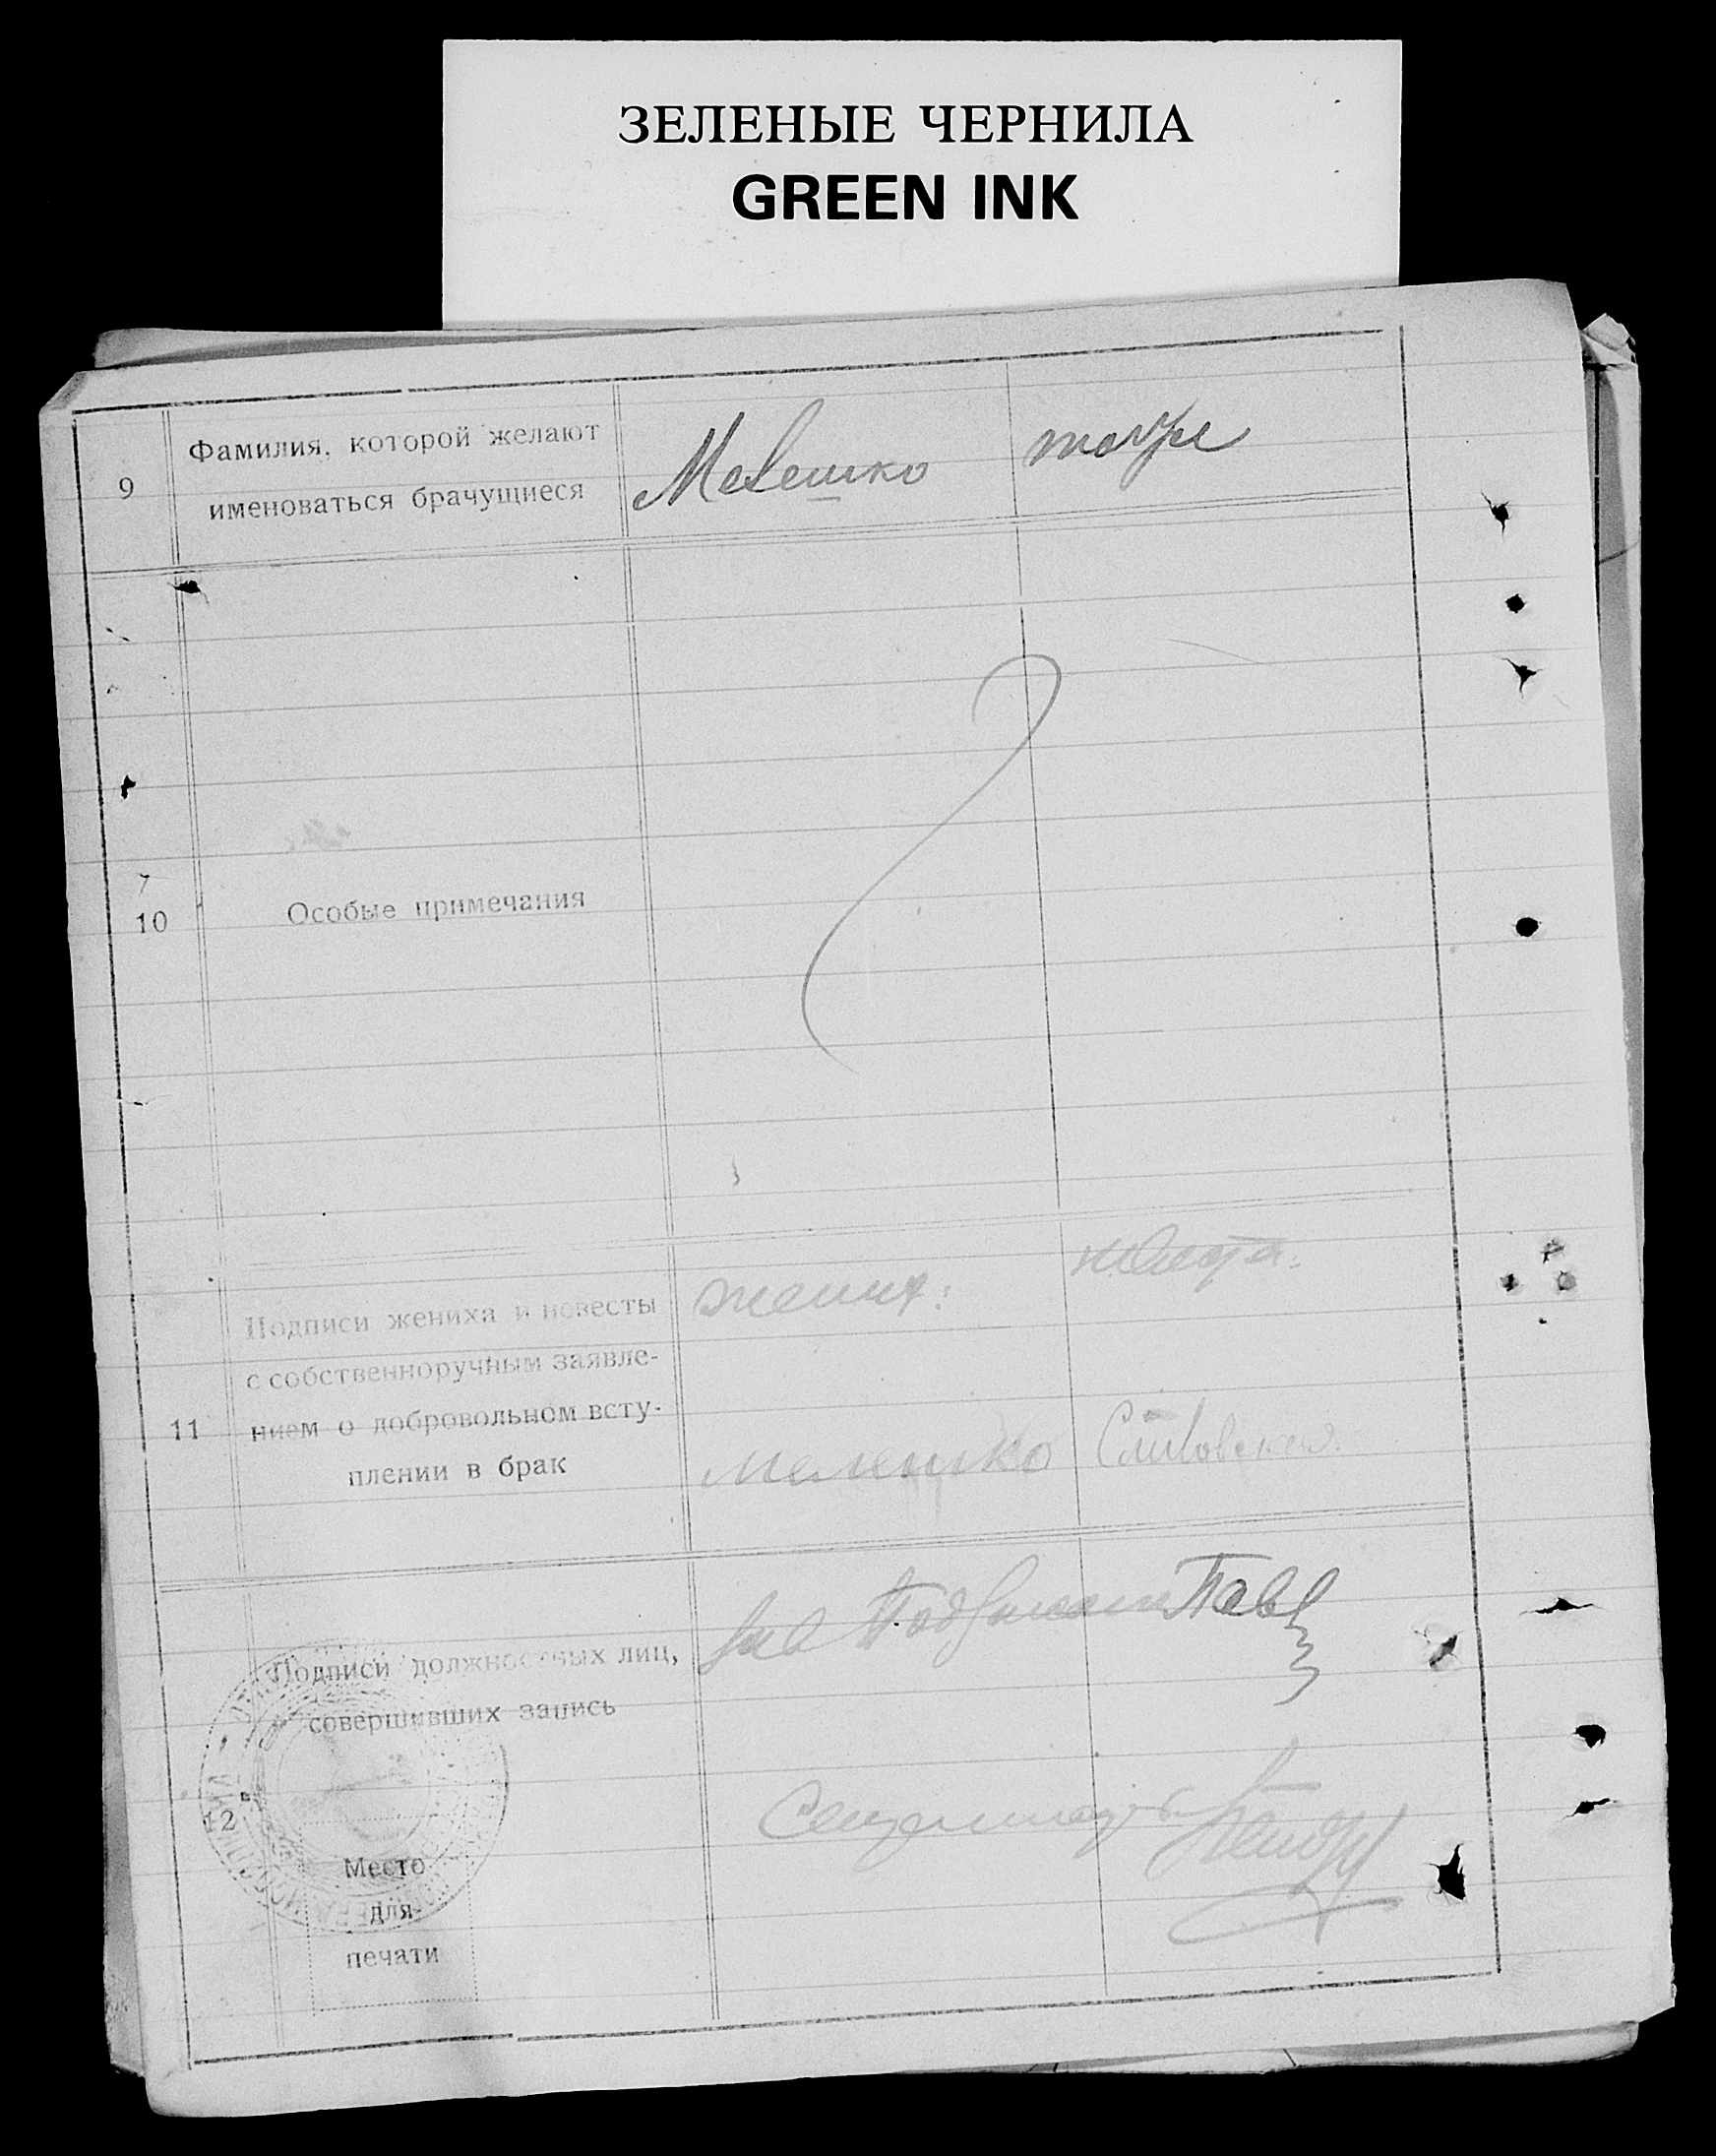 ЗЕЛЕНЫЕ ЧЕРНИЛА
GREEN INK
9
Фамилия, которой желают
именоваться брачущиеся
Мелешко
тоже
10
Особые примечания
11
Подписи жениха и невесты
с собственноручным заявле-
нием о добровольном всту-
плении в брак
жених:
невеста:
Мелешко
12
Подписи должностных лиц,
совершивших запись
Зав
Место
для
печати